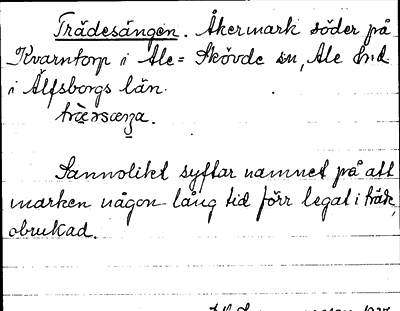 Trädesängen. Åkermark söder på
Kvarntorp i Ale=Skövde sn, Ale hrd
i Älfsborgs län.
Sannolikt syftar namnet på att
marken någon lång tid förr legat i träde,
obrukad.